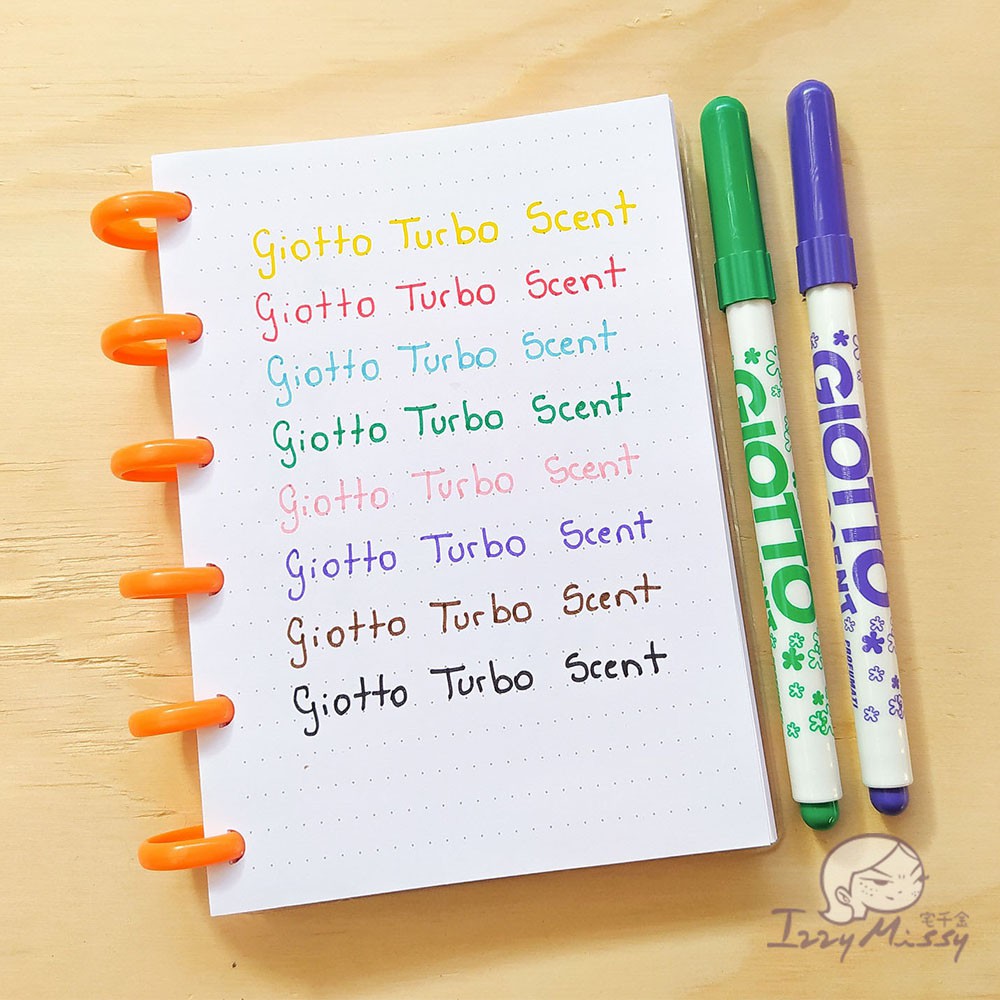 Giotto Turbo Scent
Giotto Turbo Scent
Giotto Turbo Scent
Giotto Turbo Scent
Giotto Turbo Scent
Giotto Turbo Scent
Giotto Turbo Scent
Giotto Turbo Scent
GIOTTO
GIOTTO
PROFUMATI
宅千金
IzzyMissy